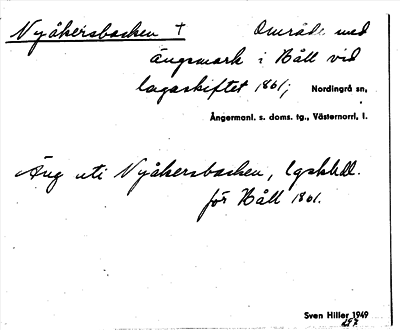 Nyåkersbacken † Område med
ängsmark i Båll vid
lagaskiftet 1861; Nordingrå sn,
Ångermanl. s. doms. tg., Västernorrl. l.
Äng uti Nyåkersbacken, lgskhdl.
för Båll 1861.
Sven Hiller 1949